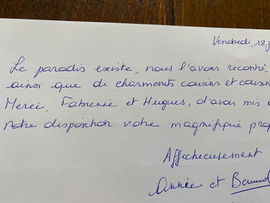 Vendredi, 18
Le paradis existe, nous l'avons rencontré,
ainsi que de charmants cousins et cousin
Merci, Fabienne et Hugues, d'avoir mis
notre disposition votre magnifique prop
Affectueusement
Année et Bernard